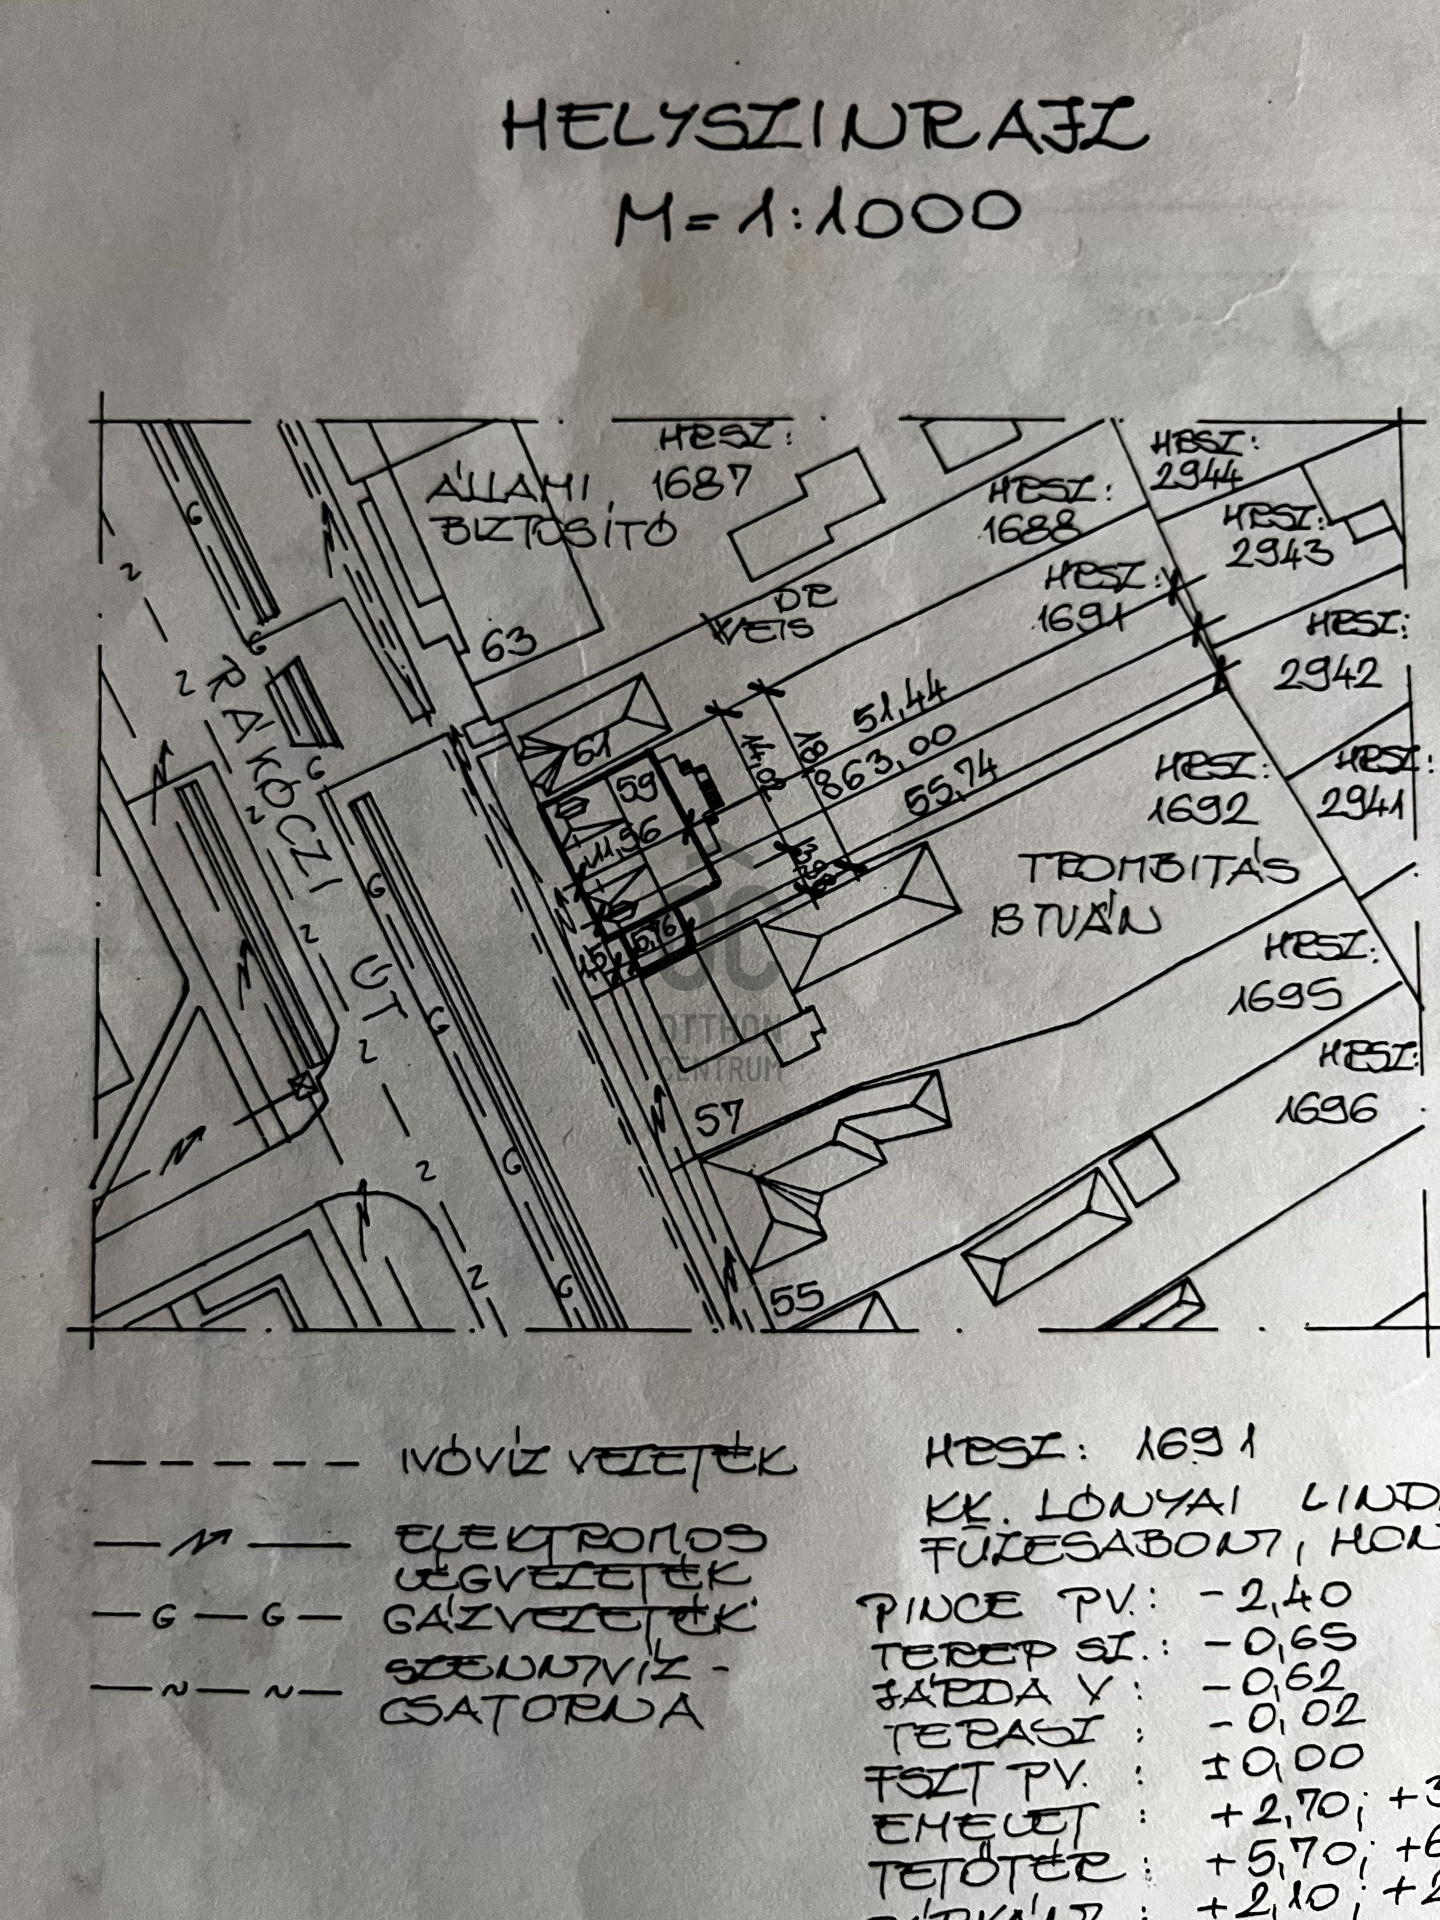 HELYSZINRAJZ
M=1:1000
HRSZ:
1687
ÁLLAMI
BIZTOSÍTÓ
HRSZ:
1688
HRSZ:
2944
HRSZ:
2943
HRSZ:
1691
DR
VEIS
63
HRSZ:
2942
RÁKÓCZI
ÚT
61
59
11,96
14,02
18
51,44
863,00
55,74
HRSZ:
1692
HRSZ:
2941
TROMBITÁS
ISTVÁN
5,76
HRSZ:
1695
HRSZ:
1696
57
55
OTTHON
CENTRUM
IVÓVÍZ VEZETÉK
ELEKTROMOS
LÉGVEZETÉK
G G GÁZVEZETÉK
SZENNYVÍZ-
CSATORNA
HRSZ: 1691
KK. LÓNYAI LIND
FÜZESABONY, HON
PINCE PV.: -2,40
TEREP SZ.: -0,65
JÁRDA V: -0,62
TERASZ: -0,02
FSZT PV. : ±0,00
EMELET : +2,70; +3
TETŐTÉR: +5,70; +6
PÁRKÁNY: +2,10; +2